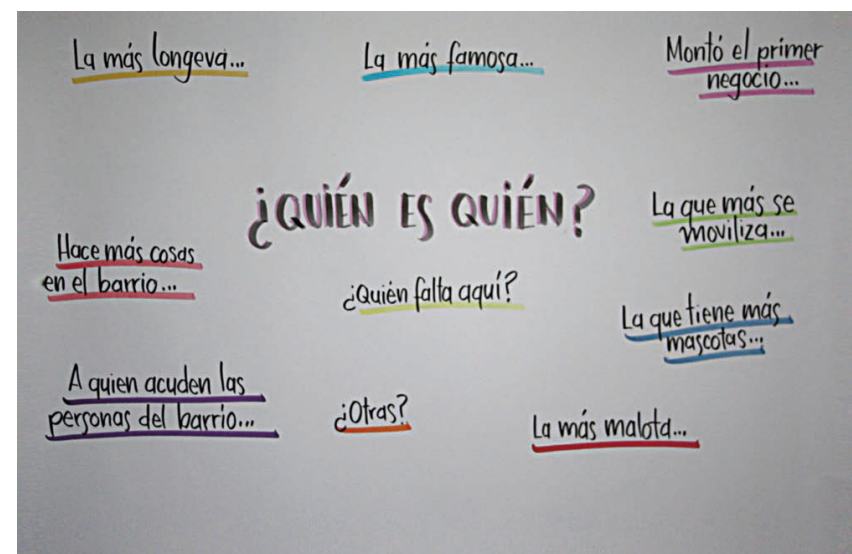 La más longeva...
La más famosa...
Montó el primer
negocio...
¿QUIÉN ES QUIÉN?
La que más se
moviliza...
Hace más cosas
en el barrio...
¿Quién falta aquí?
La que tiene más
mascotas...
A quien acuden las
personas del barrio...
¿Otras?
La más malota...